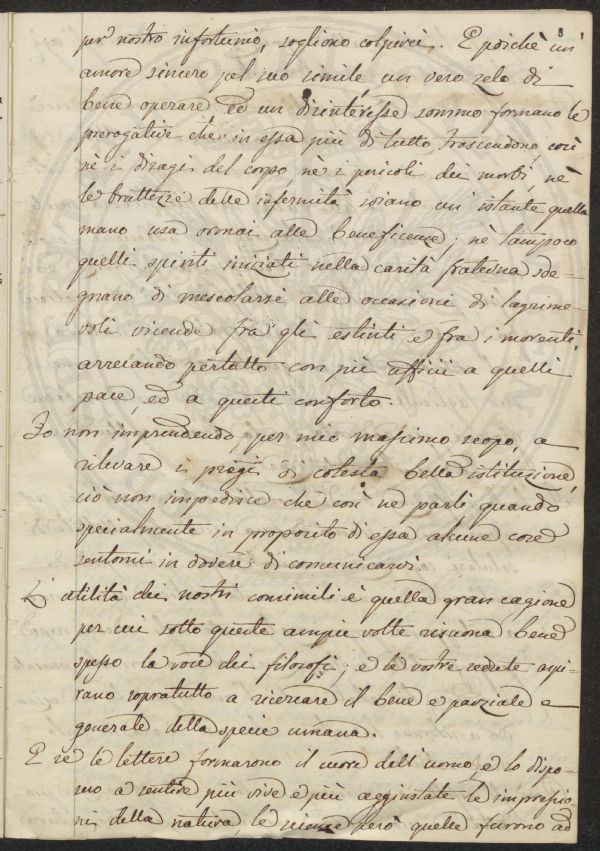 8
per nostro infortunio, sogliono colpirci. E poichè un
amore sincero pel suo simile, un vero zelo di
bene operare ed un disinteresse sommo formano le
prerogative che in essa più di tutto trascendono, così
nè i disagi del corpo, nè i pericoli dei morbi, nè
le bruttezze delle infermità sviano un istante quella
mano usa ormai alle beneficenze; nè tampoco
quelli spiriti iniziati nella carità fraterna sde-
gnano di mescolarsi alle occasioni di lagrime-
voli vicende fra gli estinti e fra i morenti,
arrecando pertutto con pii ufficii a quelli
pace, ed a questi conforto.
Io non imprendendo, per mio massimo scopo, a
rilevare i pregi di cotesta bella istituzione,
ciò non impedisce che così ne parli quando
specialmente in proposito di essa alcune cose
sentomi in dovere di comunicarvi.
L'utilità dei nostri consimili è quella gran cagione
per cui sotto queste ampie volte risuona bene
spesso la voce dei filosofi; e le vostre sedute aspi-
rano sopratutto a ricercare il bene e parziale e
generale della specie umana.
E se le lettere formarono il cuore dell'uomo, e lo dispo-
sero a sentire più vive e più aggiustate le impressio-
ni della natura, le scienze però quelle furono ad